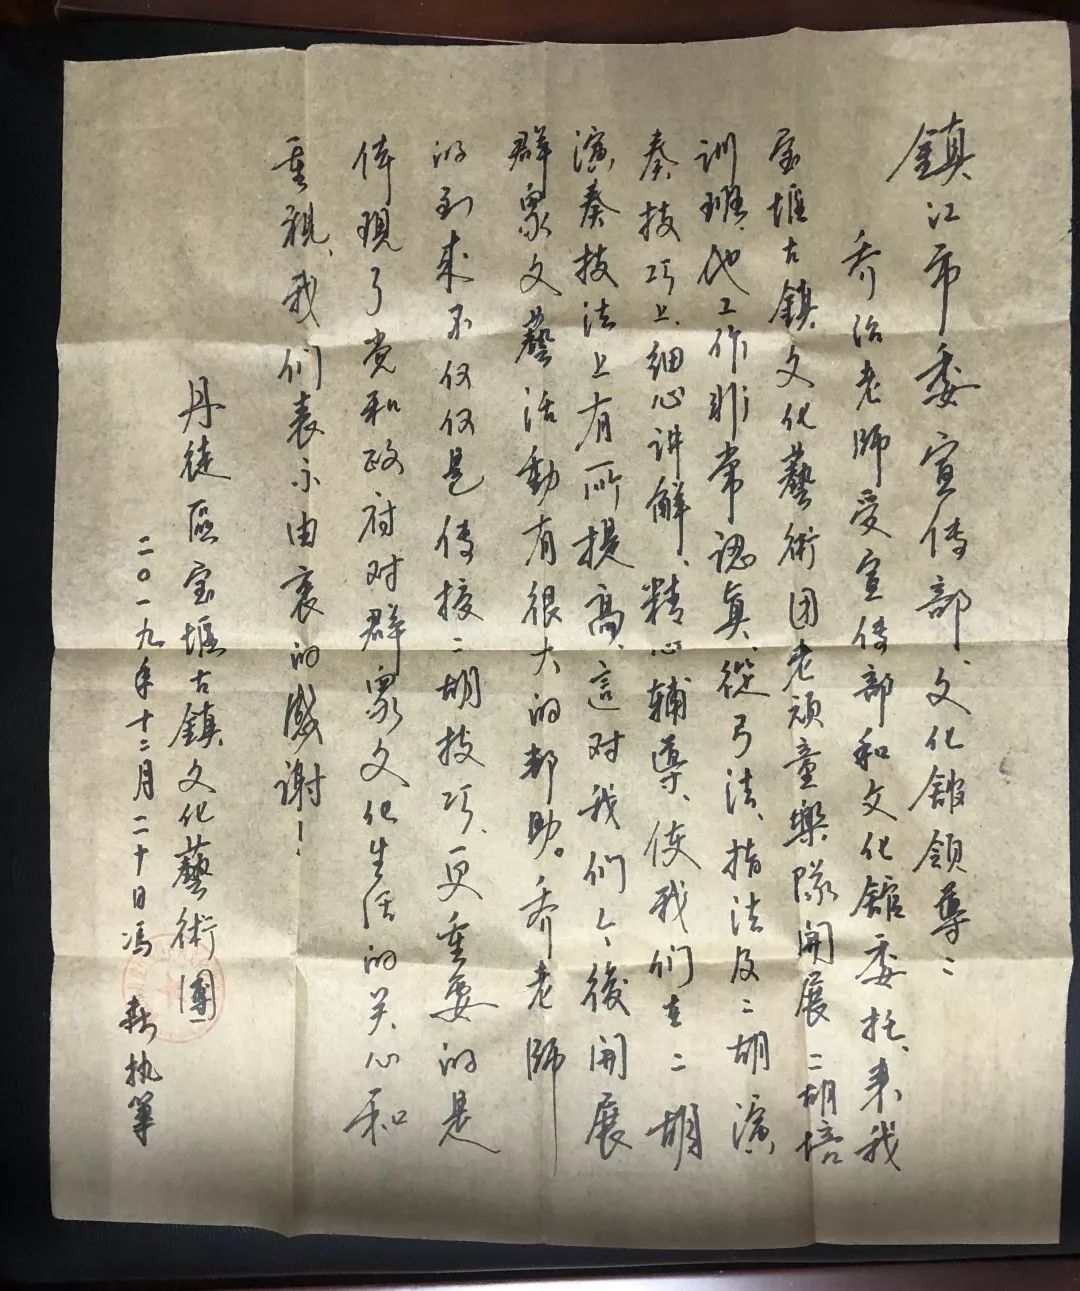 鎮江市委宣传部、文化館領導：
乔治老師受宣传部和文化館委托、来我
宝堰古鎮文化藝術团老顽童樂隊開展二胡培
训班、他工作非常認真、從弓法、指法及二胡演
奏技巧上、细心讲解、精心輔導、使我们在二胡
演奏技法上有所提高、這对我们今後開展
群眾文藝活動有很大的帮助。乔老師
的到来不仅仅是传授二胡技巧、更重要的是
体現了党和政府对群眾文化生活的关心和
重視、我们表示由衷的感谢！
丹徒區宝堰古鎮文化藝術團
二〇一九年十二月二十日馮 執筆